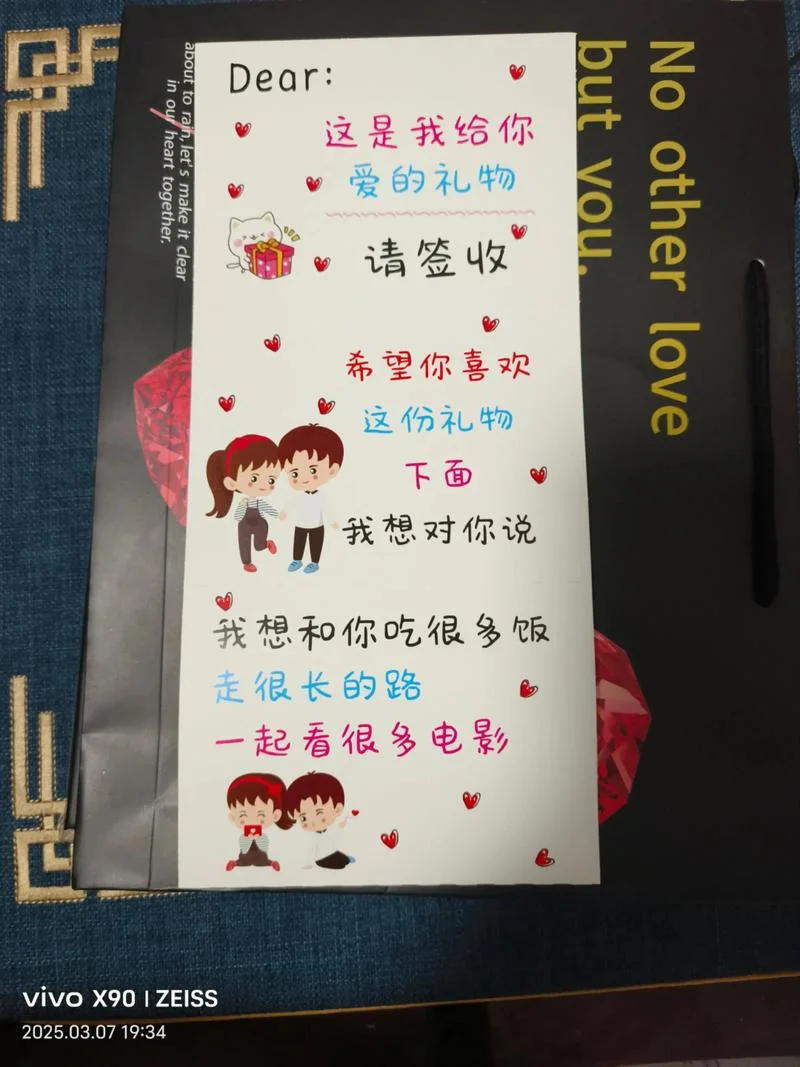 Dear:
这是我给你
爱的礼物
请签收
希望你喜欢
这份礼物
下面
我想对你说
我想和你吃很多饭
走很长的路
一起看很多电影
No other love
but you.
about to rain, let's make it clear
in our heart together.
vivo X90 | ZEISS
2025.03.07 19:34